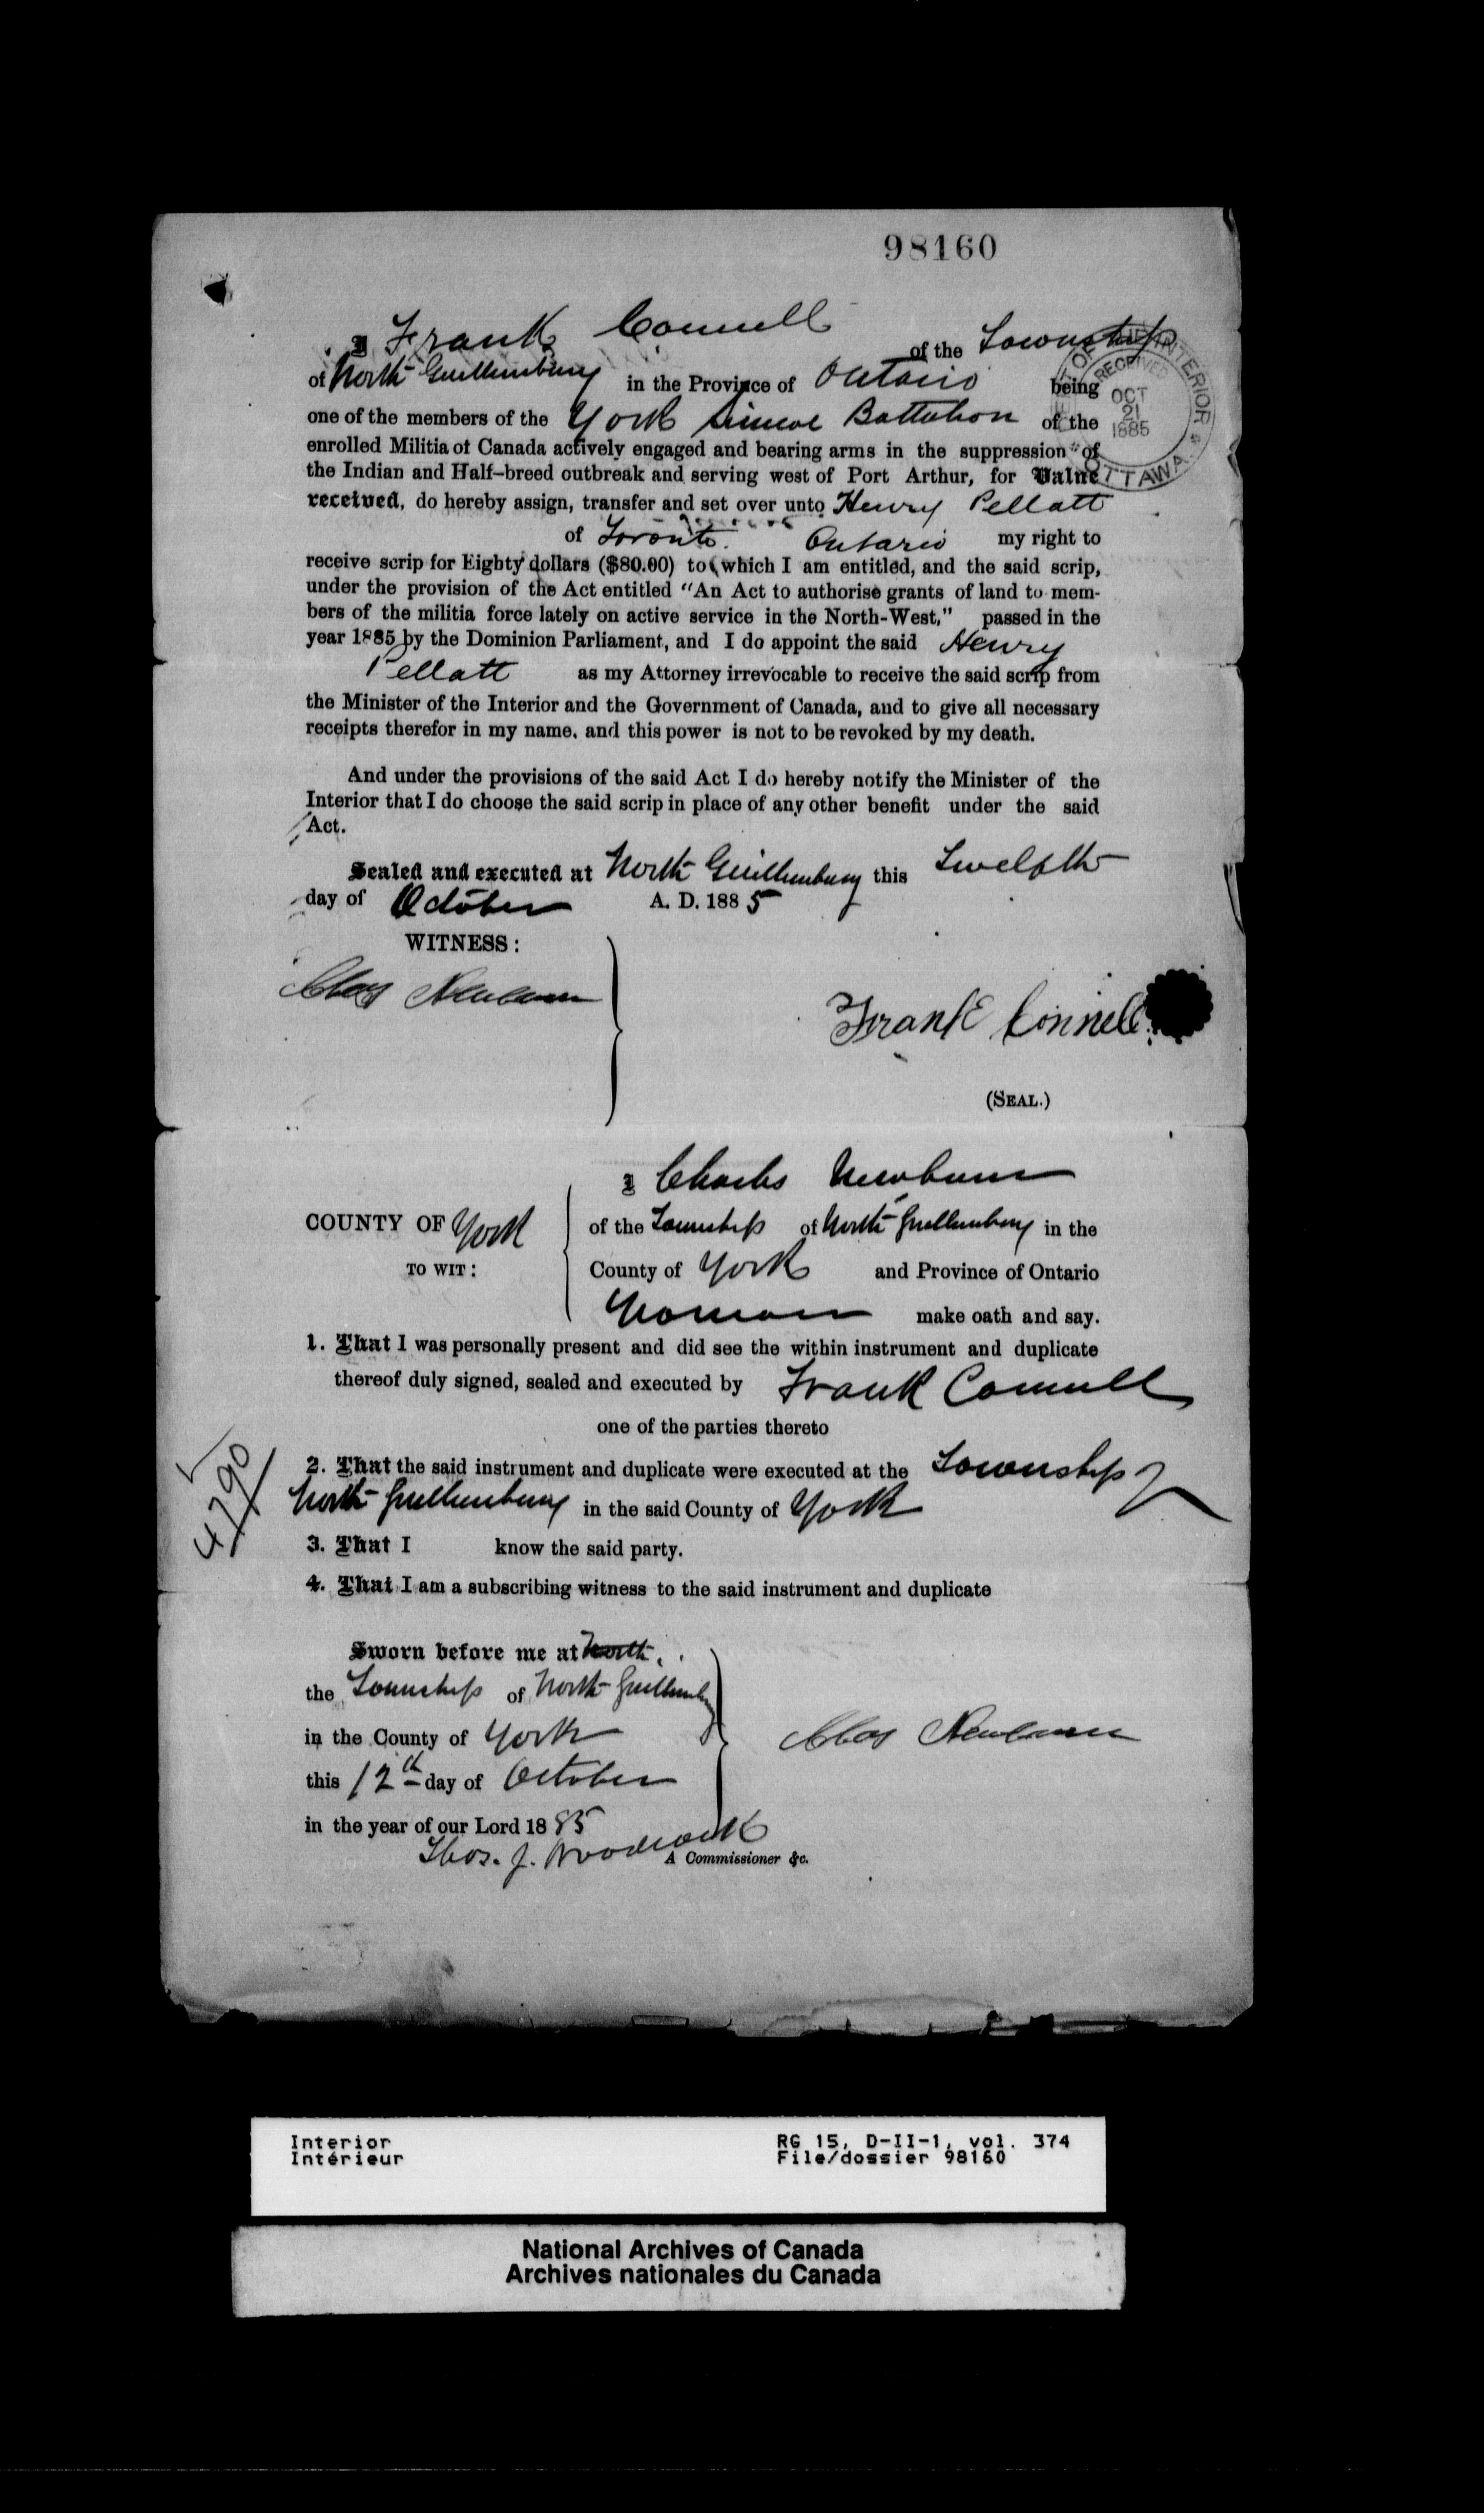 98160
I Frank Connell of the Township
of North Guillimbury in the Province of Ontario being
one of the members of the York Simcoe Battalion of the
enrolled Militia of Canada actively engaged and bearing arms in the suppression of
the Indian and Half-breed outbreak and serving west of Port Arthur, for Value
received, do hereby assign, transfer and set over unto Henry Pellatt
of Toronto Ontario my right to
receive scrip for Eighty dollars ($80.00) to which I am entitled, and the said scrip,
under the provision of the Act entitled "An Act to authorise grants of land to mem-
bers of the militia force lately on active service in the North-West," passed in the
year 1885 by the Dominion Parliament, and I do appoint the said Henry
Pellatt as my Attorney irrevocable to receive the said scrip from
the Minister of the Interior and the Government of Canada, and to give all necessary
receipts therefor in my name, and this power is not to be revoked by my death.
And under the provisions of the said Act I do hereby notify the Minister of the
Interior that I do choose the said scrip in place of any other benefit under the said
Act.
Sealed and executed at North Guillimbury this Twelfth
day of October A. D. 1885
WITNESS:
Chas
Frank Connell
(SEAL.)
I Charles
COUNTY OF York
of the Township of North Guillimbury in the
TO WIT:
County of York and Province of Ontario
make oath and say.
1. That I was personally present and did see the within instrument and duplicate
thereof duly signed, sealed and executed by Frank Connell
one of the parties thereto
2. That the said instrument and duplicate were executed at the Township of
North Guillimbury in the said County of York
3. That I know the said party.
4. That I am a subscribing witness to the said instrument and duplicate
4790
Sworn before me at North
the Township of North Guillimbury
in the County of York
this 12th day of October
in the year of our Lord 1885
Chas
Thos. J. Woodcock
A Commissioner &c.
DEPT OF THE INTERIOR
RECEIVED
OCT
21
1885
OTTAWA
Interior
Intérieur
RG 15, D-II-1, vol. 374
File/dossier 98160
National Archives of Canada
Archives nationales du Canada